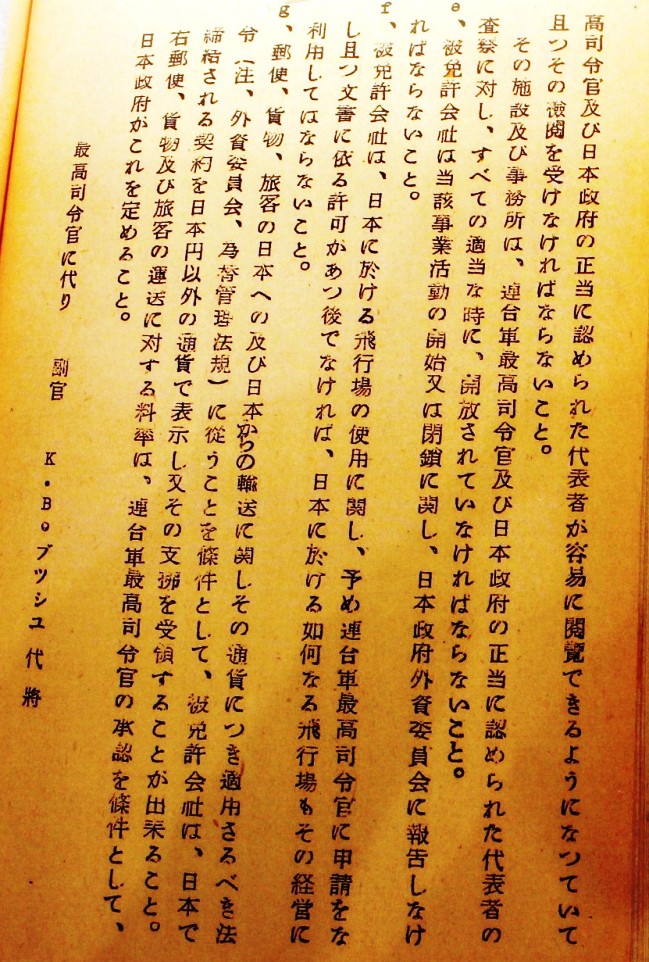 高司令官及び日本政府の正当に認められた代表者が容易に閲覧できるようになつていて
且つその検閲を受けなければならないこと。
その施設及び事務所は、連合軍最高司令官及び日本政府の正当に認められた代表者の
査察に対し、すべての適当な時に、開放されていなければならないこと。
e、被免許会社は当該事業活動の開始又は閉鎖に関し、日本政府外資委員会に報告しなけ
ればならないこと。
f、被免許会社は、日本に於ける飛行場の使用に関し、予め連合軍最高司令官に申請をな
し且つ文書に依る許可があつ後でなければ、日本に於ける如何なる飛行場もその経営に
利用してはならないこと。
g、郵便、貨物、旅客の日本への及び日本からの輸送に関しその通貨につき適用さるべき法
令（注、外資委員会、為替管理法規）に従うことを條件として、被免許会社は、日本で
締結される契約を日本円以外の通貨で表示し又その支拂を受領することが出来ること。
右郵便、貨物及び旅客の運送に対する料率は、連合軍最高司令官の承認を條件として、
日本政府がこれを定めること。
最高司令官に代り 副官 K・B。ブツシユ代將